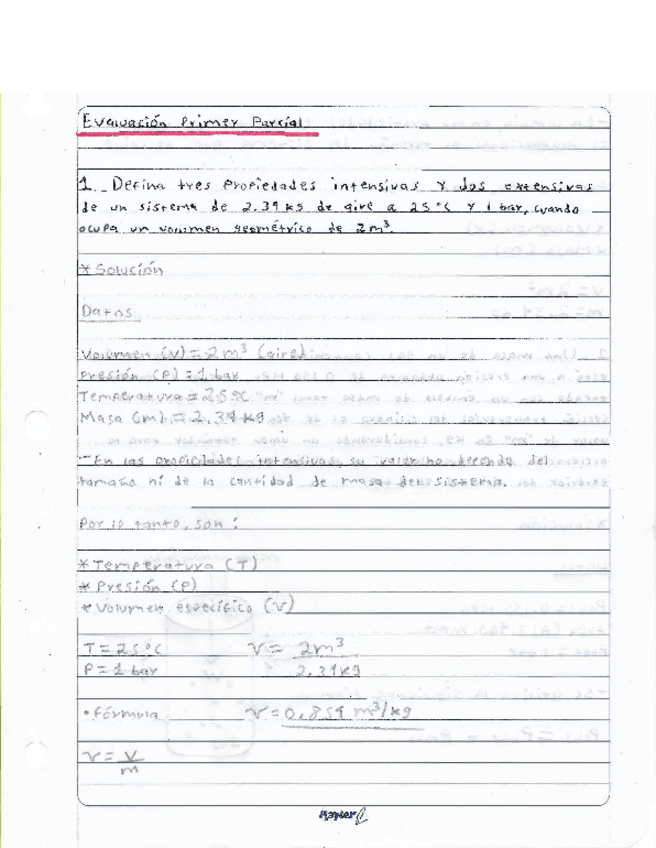 Evaluación Primer Parcial
1. Defina tres propiedades intensivas y dos extensivas
de un sistema de 2.39 kg de aire a 25°C y 1 bar, cuando
ocupa un volumen geométrico de 2m³.
* Solución
Datos
Volumen (V) = 2m³ (aire)
Presión (P) = 1 bar
Temperatura = 25°C
Masa (m) = 2,39 kg
- En las propiedades intensivas, su valor no depende del
tamaño ni de la cantidad de masa del sistema.
Por lo tanto, son:
* Temperatura (T)
* Presión (P)
* Volumen específico (v)
T = 25°C v = 2m³
P = 1 bar 2,39kg
• Fórmula v = 0,859 m³/kg
v = V
m